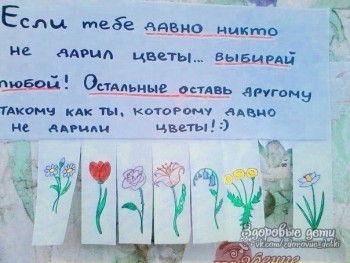 Если тебе давно никто
не дарил цветы... выбирай
любой! Остальные оставь другому
такому как ты, которому давно
не дарили цветы!:)
Здоровые дети